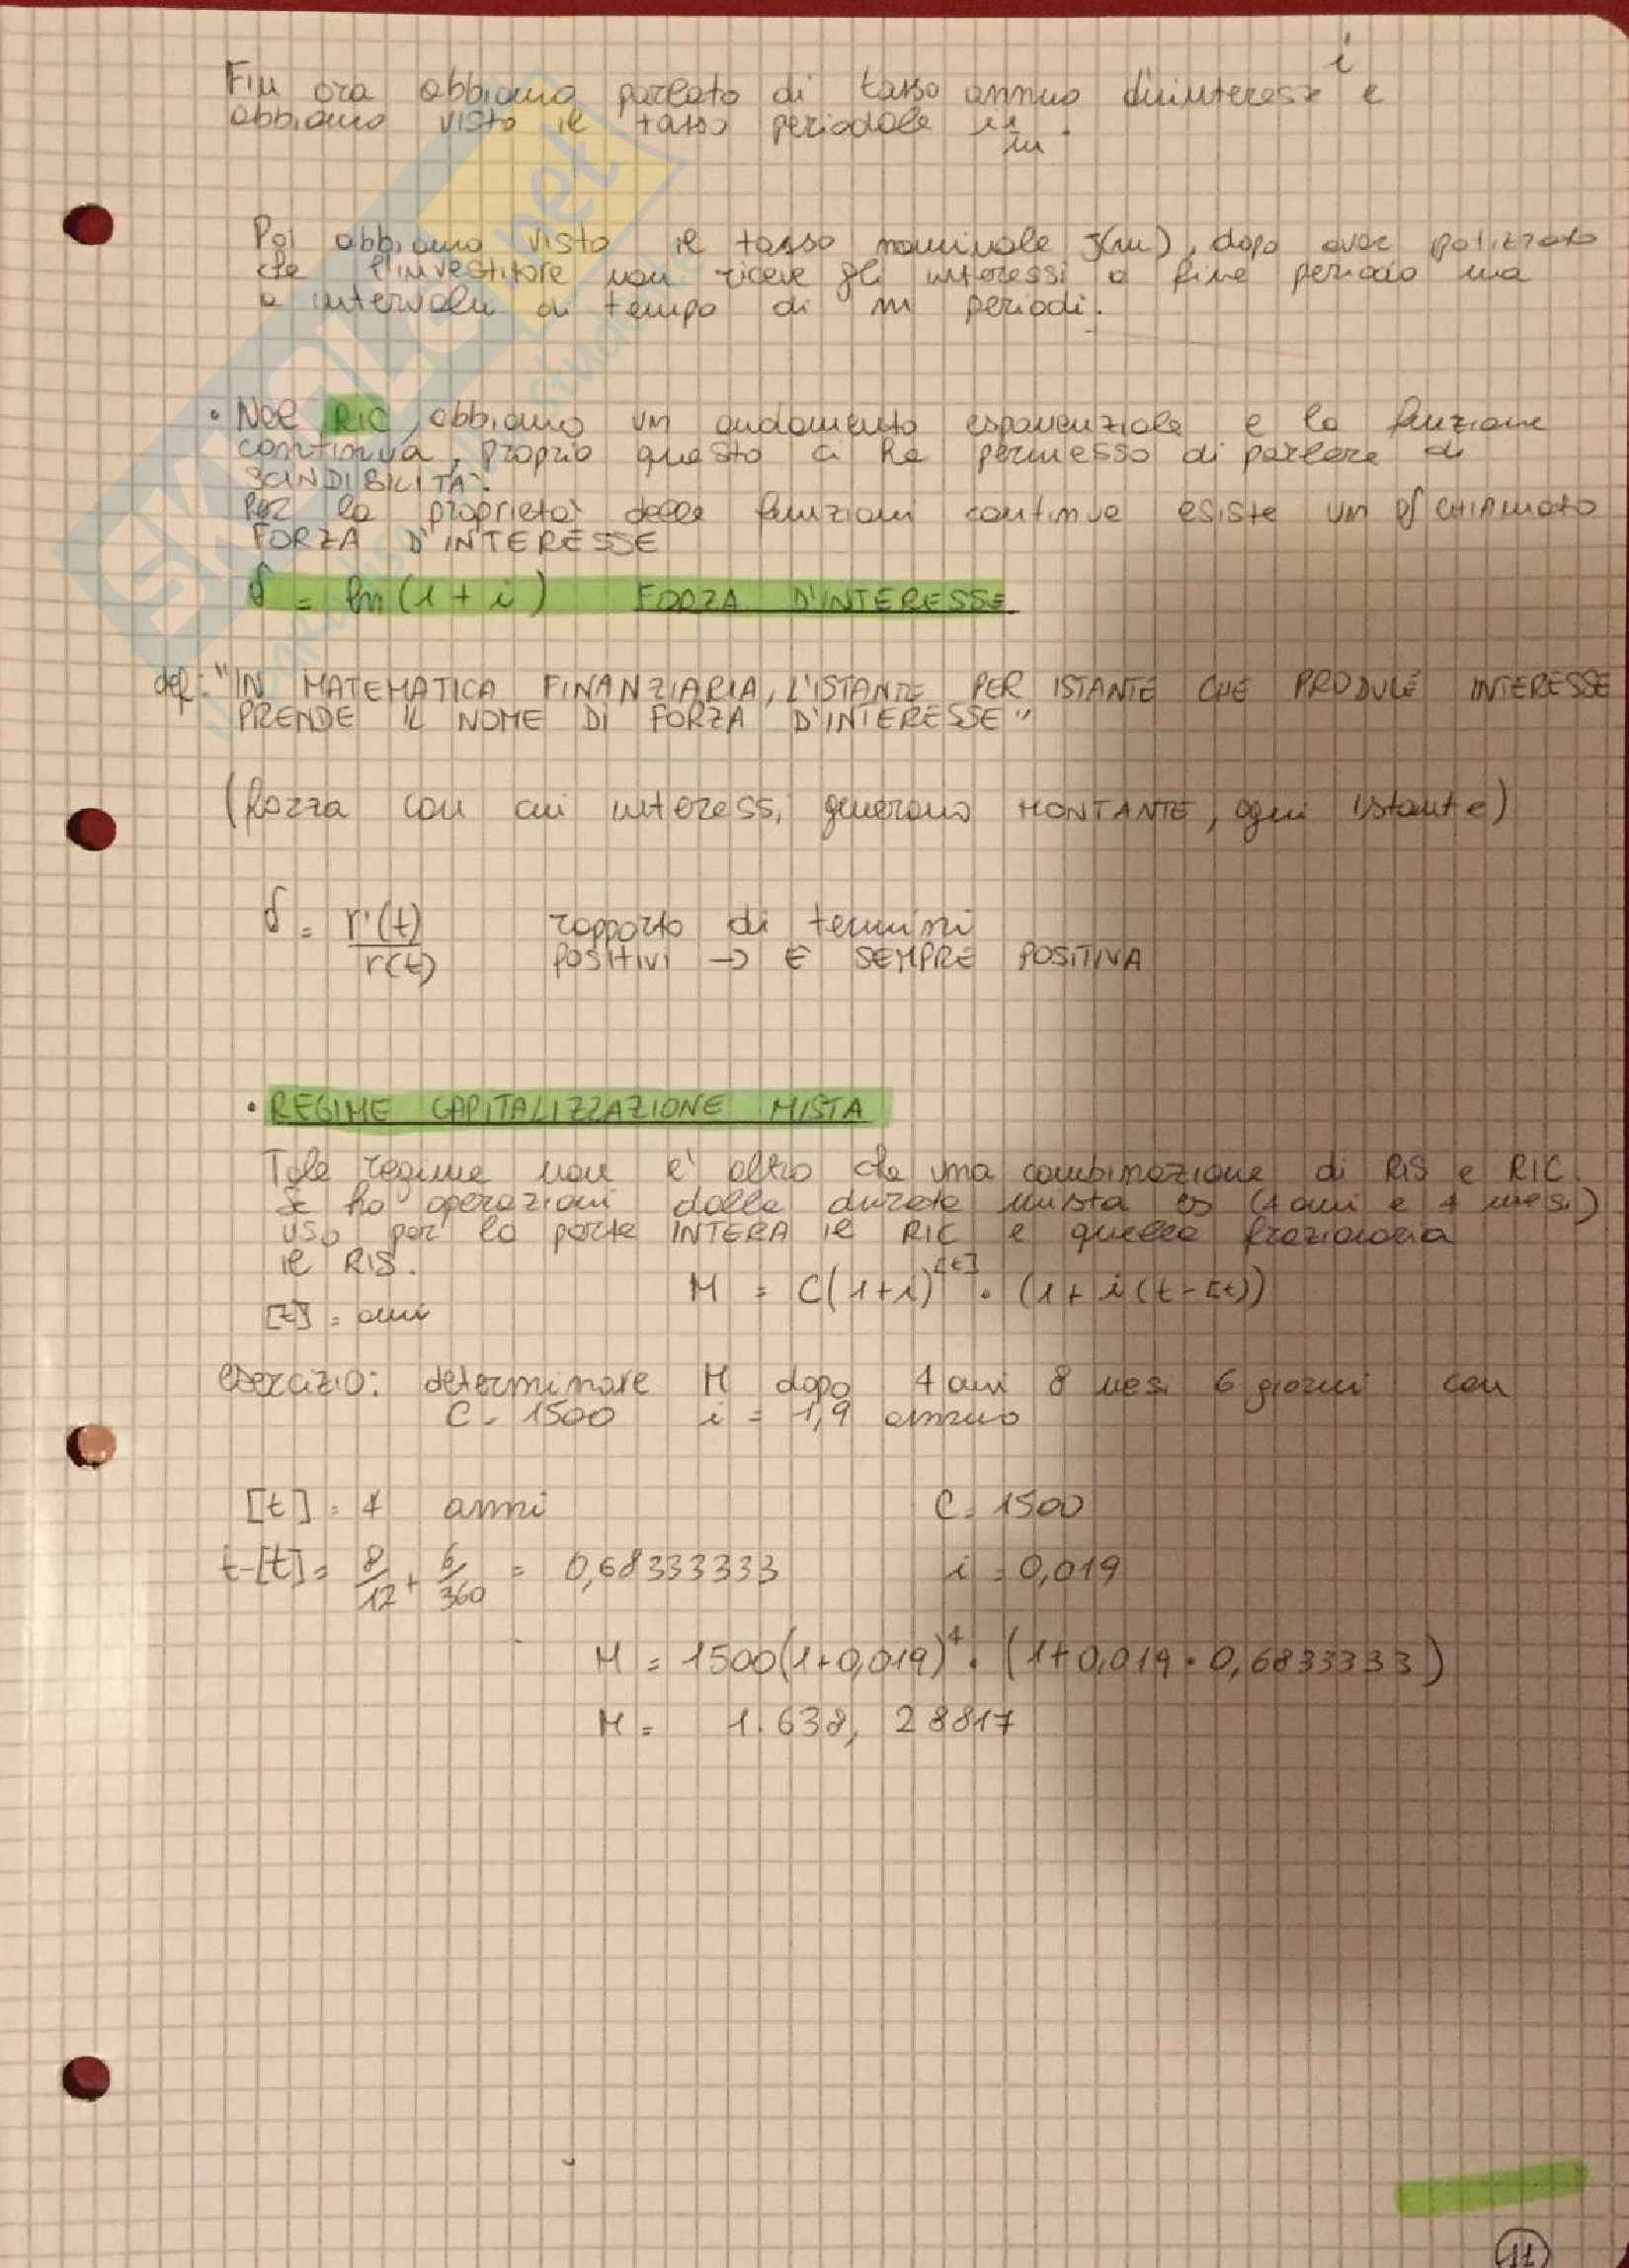 i
Fin ora abbiamo parlato di tasso annuo d'interesse e
abbiamo visto il tasso periodale i 1/m .
Poi abbiamo visto il tasso nominale J(m), dopo aver
che l'investitore non riceve gli interessi a fine periodo ma
a intervalli di tempo di m periodi.
• Nel RIC, abbiamo un andamento esponenziale e la funzione
continua, proprio questo ci ha permesso di parlare di
SCINDIBILITA'.
Per la proprietà delle funzioni continue esiste un δ CHIAMATO
FORZA D'INTERESSE
δ = ln(1+i) FORZA D'INTERESSE
def: "IN MATEMATICA FINANZIARIA, L'ISTANTE PER ISTANTE CHE PRODUCE INTERESSE
PRENDE IL NOME DI FORZA D'INTERESSE"
(forza con cui interessi generano MONTANTE, ogni istante)
δ = r'(t)/r(t) rapporto di termini
positivi → È SEMPRE POSITIVA
• REGIME CAPITALIZZAZIONE MISTA
Tale regime non è altro che una combinazione di RIS e RIC.
Se ho operazioni dalla durata mista es (4 anni e 4 mesi)
uso per la parte INTERA il RIC e quella frazionaria
il RIS.
M = C(1+i)^[t] · (1+i(t-[t]))
[t] = anni
esercizio: determinare M dopo 4 anni 8 mesi 6 giorni con
C = 1500 i = 1,9 annuo
[t] = 4 anni C = 1500
t-[t] = 8/12 + 6/360 = 0,68333333 i = 0,019
M = 1500(1+0,019)^4 · (1+0,019·0,6833333)
M = 1.638, 28817
11